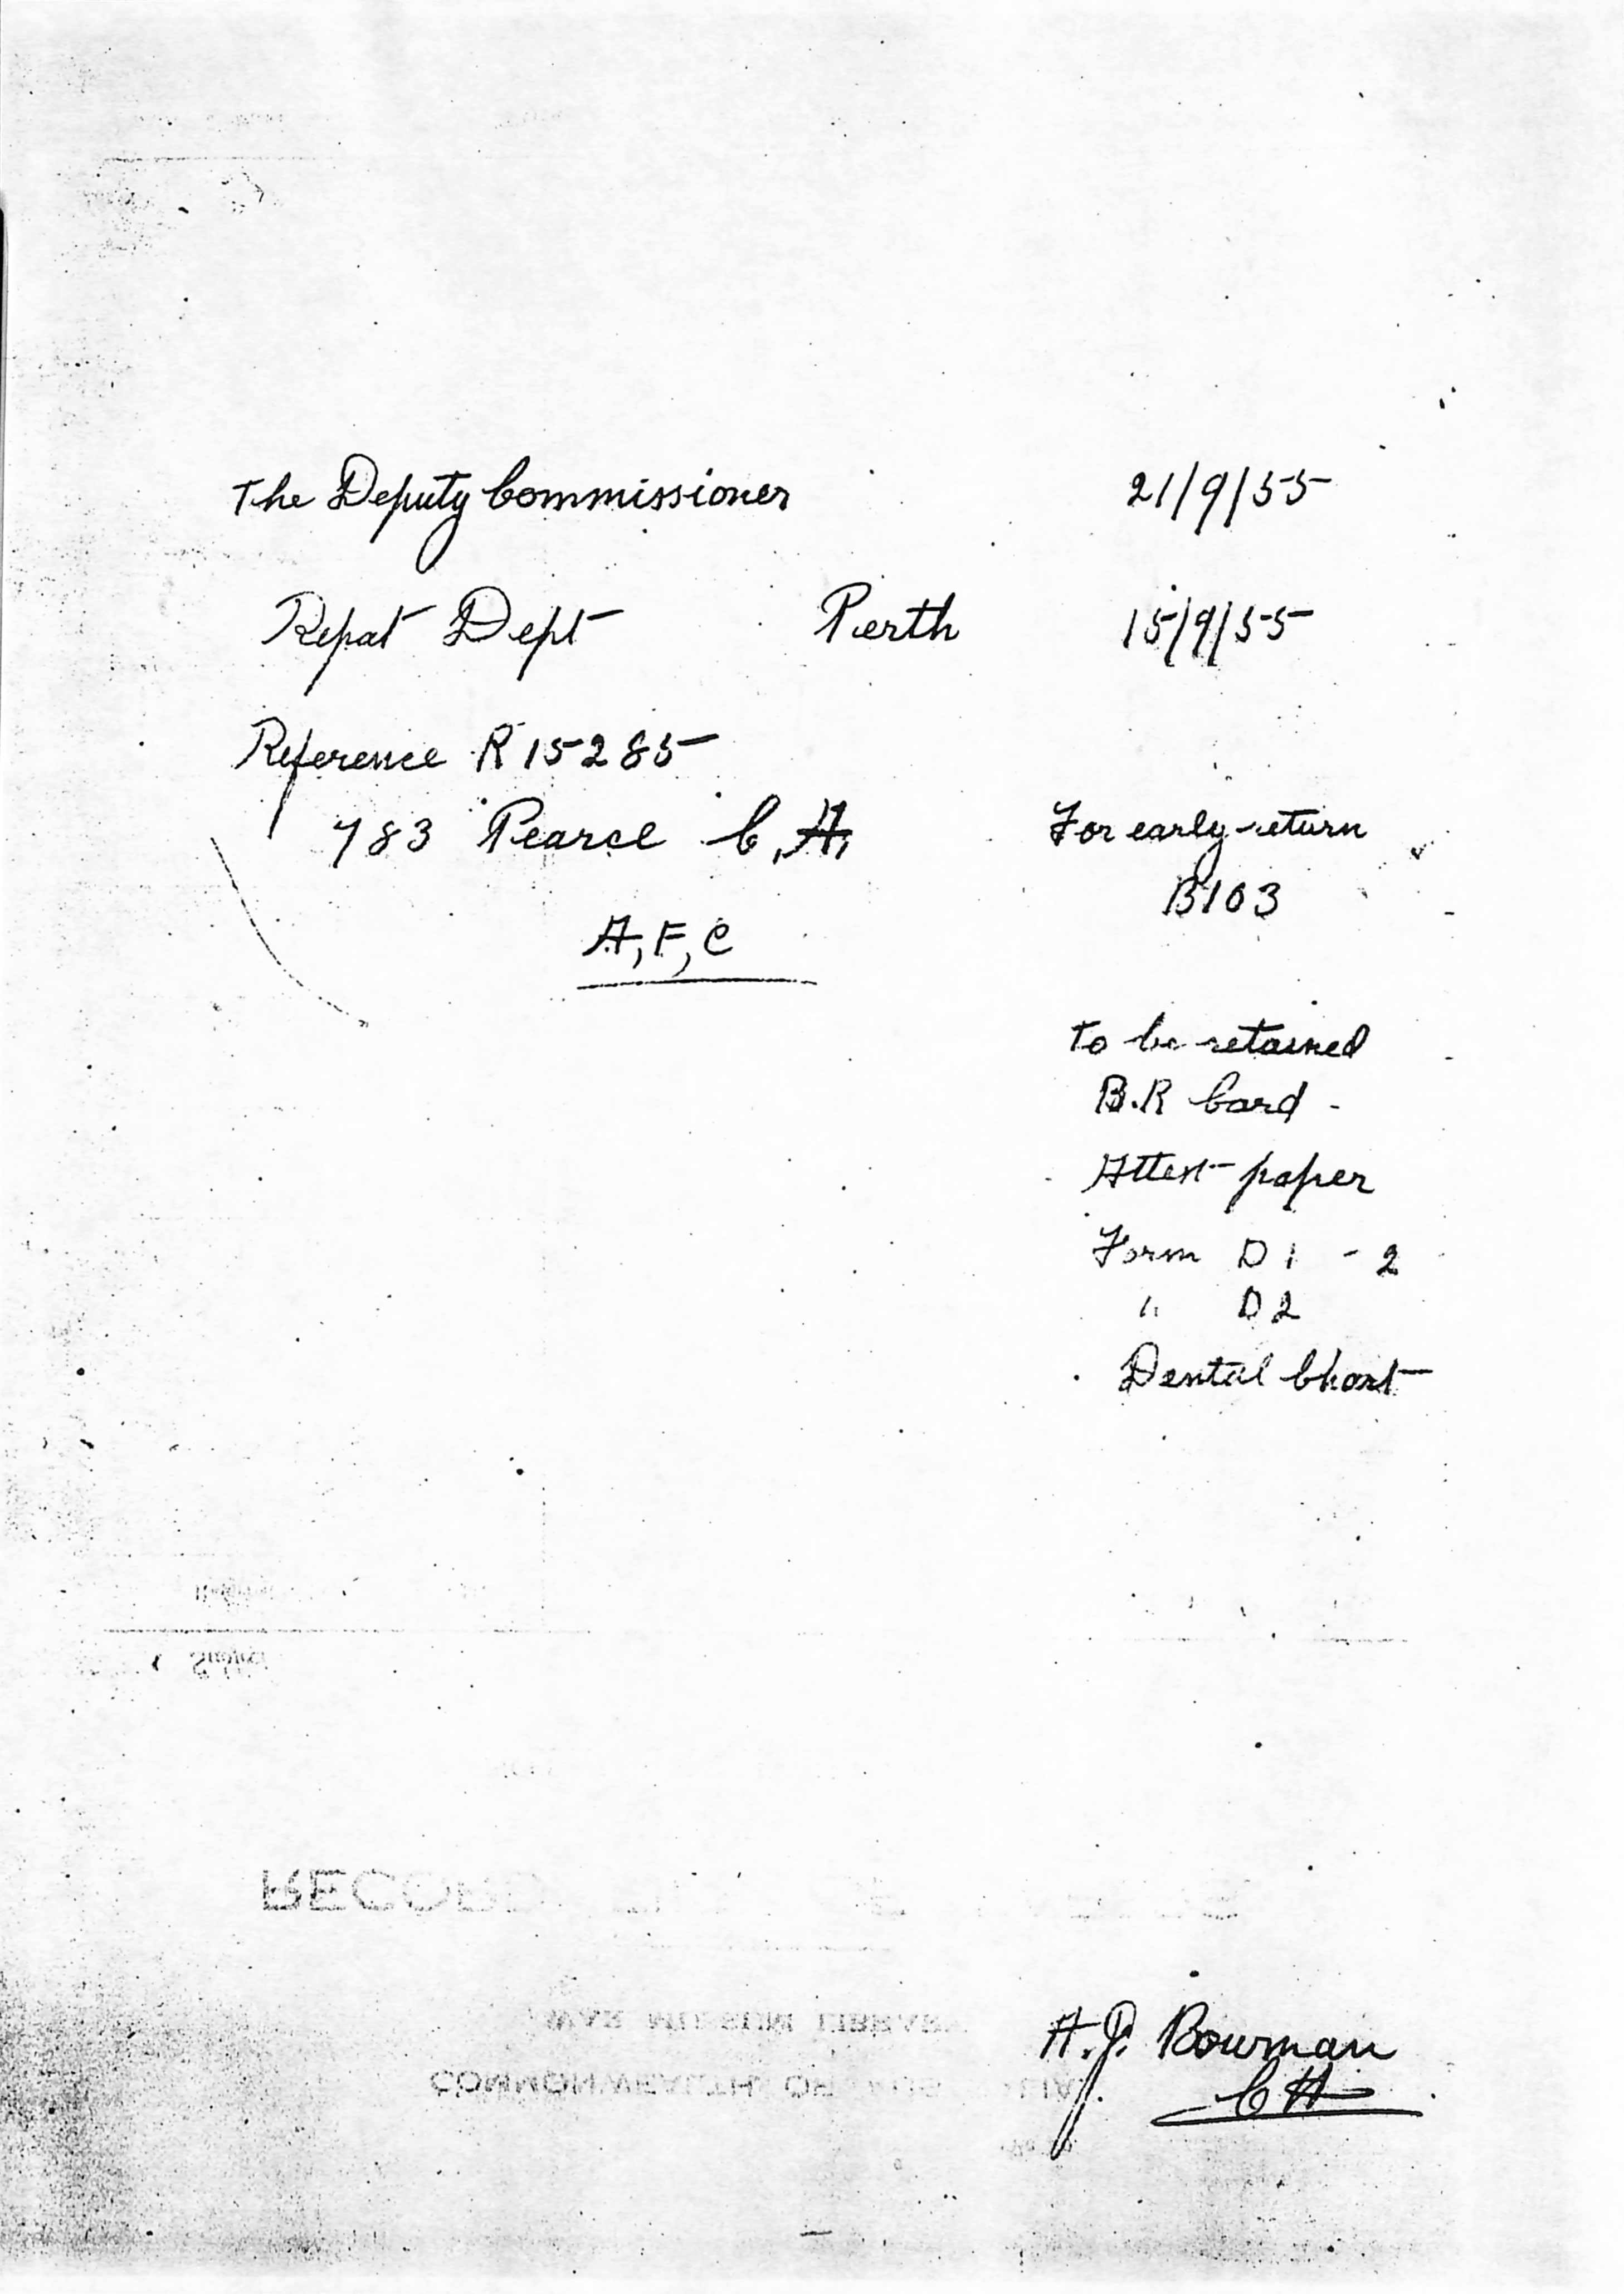 The Deputy Commissioner 21/9/55
Repat Dept Perth 15/9/55
Reference R 15285
783 Pearce C, A,
A, F, C
For early return
B103
To be retained
B.R Card -
Attest paper
Form D1 - 2
" D2
Dental Chart
RECORD
WAR MUSEUM LIBRARY
COMMONWEALTH OF
A.J. Bowman
CA